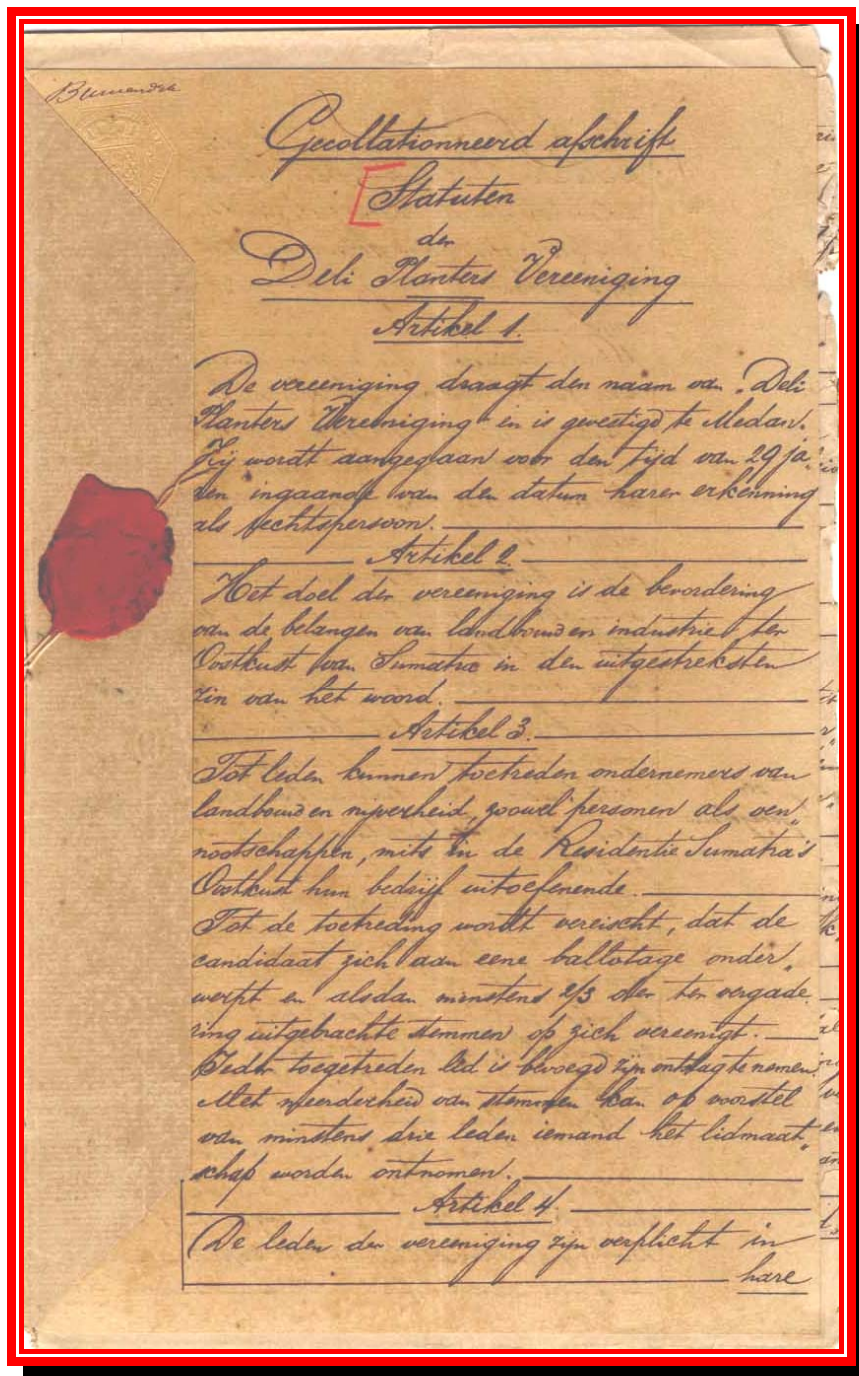 Gecollationneerd afschrift
Statuten
der
Deli Planters Vereeniging
Artikel 1.
De vereeniging draagt den naam van „Deli
Planters Vereeniging" en is gevestigd te Medan.
Zij wordt aangegaan voor den tijd van 29 ja„
ren ingaande van den datum harer erkenning
als rechtspersoon.
Artikel 2.
Het doel der vereeniging is de bevordering
van de belangen van landbouw en industrie ter
Oostkust van Sumatra in den uitgestreksten
zin van het woord.
Artikel 3.
Tot leden kunnen toetreden ondernemers van
landbouw en nijverheid, zoowel personen als ven„
nootschappen, mits in de Residentie Sumatra's
Oostkust hun bedrijf uitoefenende.
Tot de toetreding wordt vereischt, dat de
candidaat zich aan eene ballotage onder„
werpt en alsdan minstens 2/3 der ter vergade„
ring uitgebrachte stemmen op zich vereenigt.
Ieder toegetreden lid is bevoegd zijn ontslag te nemen.
Met meerderheid van stemmen kan op voorstel
van minstens drie leden iemand het lidmaat„
schap worden ontnomen.
Artikel 4.
De leden der vereeniging zijn verplicht in
hare